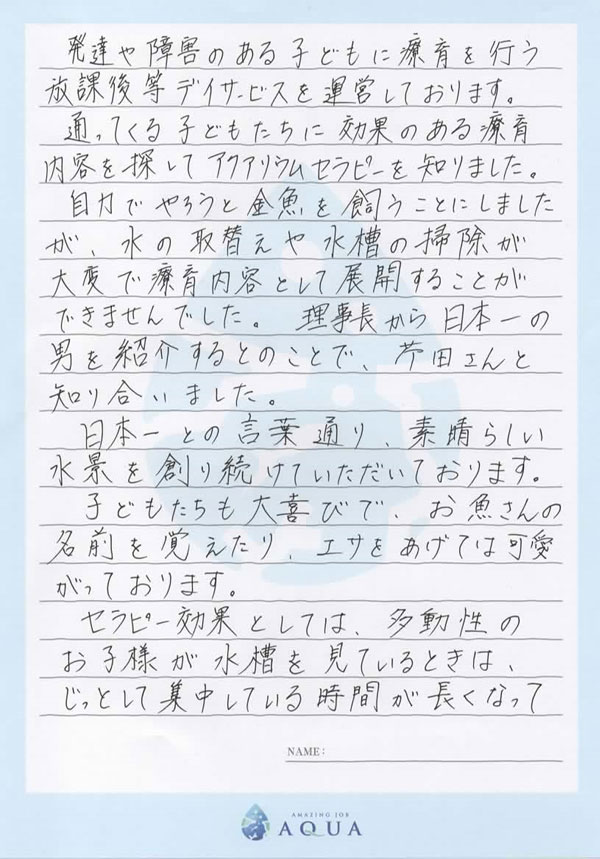 発達や障害のある子どもに療育を行う
放課後等デイサービスを運営しております。
通ってくる子どもたちに効果のある療育
内容を探してアクアリウムセラピーを知りました。
自力でやろうと金魚を飼うことにしました
が、水の取替えや水槽の掃除が
大変で療育内容として展開することが
できませんでした。理事長から日本一の
男を紹介するとのことで、芹田さんと
知り合いました。
日本一との言葉通り、素晴らしい
水景を創り続けていただいております。
子どもたちも大喜びで、お魚さんの
名前を覚えたり、エサをあげては可愛
がっております。
セラピー効果としては、多動性の
お子様が水槽を見ているときは、
じっとして集中している時間が長くなって
NAME:
AMAZING JOB
AQUA